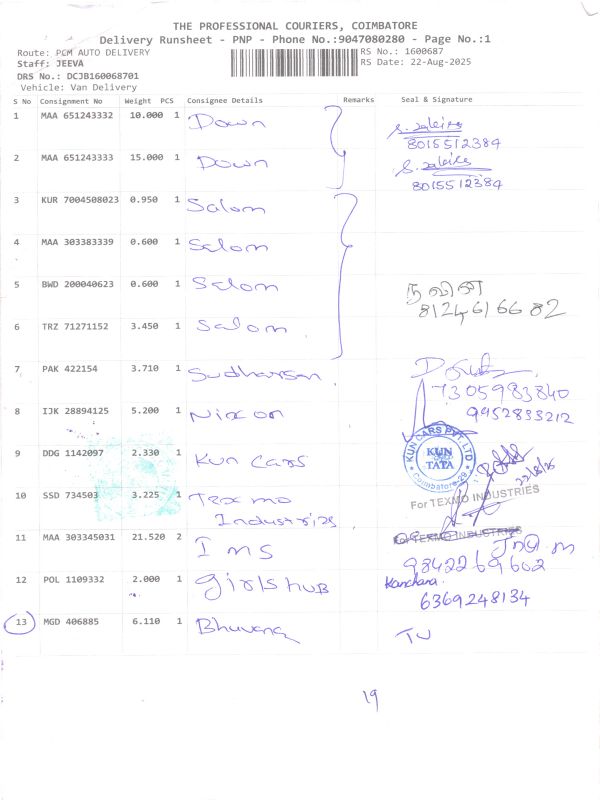 THE PROFESSIONAL COURIERS, COIMBATORE
Delivery Runsheet - PNP - Phone No.:9047080280 - Page No.:1
Route: PCM AUTO DELIVERY
RS No.: 1600687
Staff: JEEVA
RS Date: 22-Aug-2025
DRS No.: DCJB160068701
Vehicle: Van Delivery
S No Consignment No Weight PCS Consignee Details Remarks Seal & Signature
1 MAA 651243332 10.000 1 Down
8015512384
2 MAA 651243333 15.000 1 Down
8015512384
3 KUR 7004508023 0.950 1 Salom
4 MAA 303383339 0.600 1 Salom
5 BWD 200040623 0.600 1 Salom நவின்
8124616682
6 TRZ 71271152 3.450 1 Salom
7 PAK 422154 3.710 1 Sudharsan
7305983840
8 IJK 28894125 5.200 1 Nixon 9952833212
9 DDG 1142097 2.330 1 Kun Cars KUN CARS PVT LTD
KUN TATA
Coimbatore-29
22/8/25
10 SSD 734503 3.225 1 Texmo Industries For TEXMO INDUSTRIES
For TEXMO INDUSTRIES
11 MAA 303345031 21.520 2 Ims
9842269602
12 POL 1109332 2.000 1 Girlshub Kanchana
6369248134
13 MGD 406885 6.110 1 Bhuvana
19